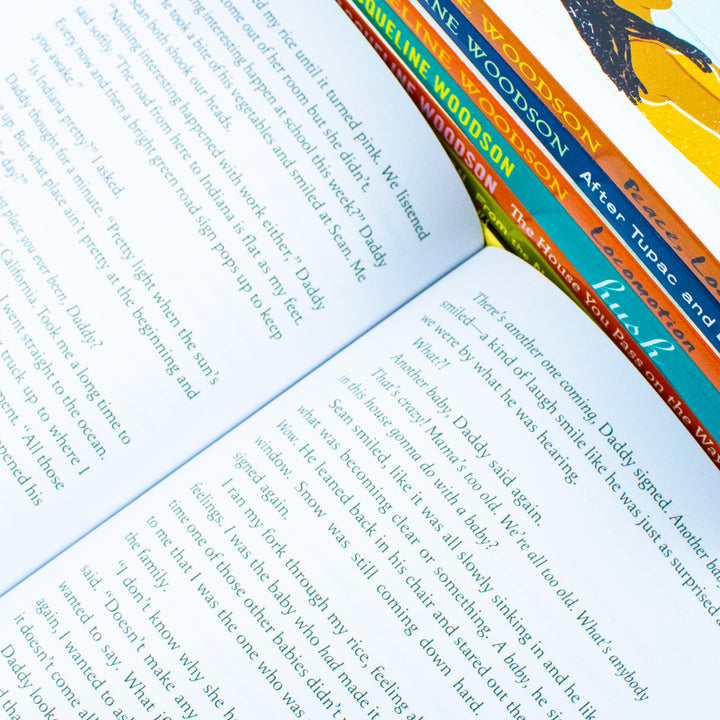 my rice until it turned pink. We listened
come out of her room but she didn't.
interesting happen at school this week?" Daddy
took a bite of his vegetables and smiled at Sean. Me
Sean both shook our heads.
"Nothing interesting happened with work either," Daddy
said softly. "The road from here to Indiana is flat as my feet.
Every now and then a bright green road sign pops up to keep
you awake."
"Is Indiana pretty?" I asked.
Daddy thought for a minute. "Pretty light when the sun's
up. But what place ain't pretty at the beginning and
day?"
place you ever been, Daddy?
California. Took me a long time to
I went straight to the ocean.
truck up to where I
"All those
opened his
There's another one coming, Daddy signed. Another
smiled—a kind of laugh smile like he was just as surprised
we were by what he was hearing.
What?!
Another baby, Daddy said again.
That's crazy! Mama's too old. We're all too old. What's anybody
in this house gonna do with a baby?
Sean smiled, like it was all slowly sinking in and he
what was becoming clear or something. A baby, he
Wow. He leaned back in his chair and stared out the
window. Snow was still coming down hard.
signed again.
I ran my fork through my rice, feeling
feelings, I was the baby who had made it
time one of those other babies didn't
to me that I was the one who was
the family.
"I don't know why she
said. "Doesn't make any
wanted to say. What
again, I wanted to
it doesn't come all
Daddy
WOODSON Peace,
WOODSON After Tupac and
WOODSON Locomotion
JACQUELINE WOODSON hush
WOODSON The House You Pass on the Way